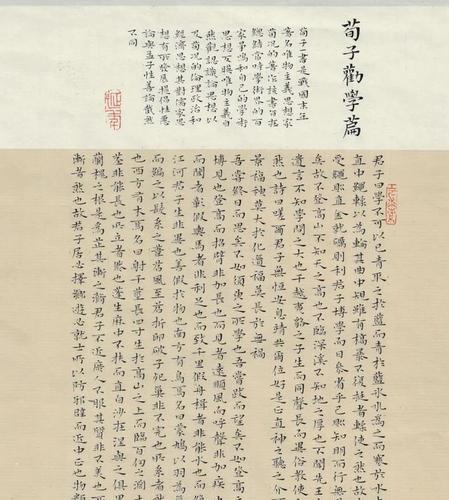 荀子勸學篇
荀子一書是戰國末年
著名唯物主義思想家
荀況的著作該書旨在
總結當時學術界的百
家爭鳴和自己的學術
思想反映唯物主義自
然觀認識論思想以
及荀況的倫理政治和
經濟思想其對儒家思
想有所發展提倡性惡
論與孟子性善論截然
不同
君子曰學不可以已青取之於藍而青於藍冰水為之而寒於水
直中繩輮以為輪其曲中規雖有槁暴不復挺者輮使之然也故
受繩則直金就礪則利君子博學而日參省乎己則知明而行無
矣故不登高山不知天之高也不臨深溪不知地之厚也不聞先王
遺言不知學問之大也干越夷貉之子生而同聲長而異俗教使
然也詩曰嗟爾君子無恆安息靖共爾位好是正直神之聽之介
景福神莫大於化道福莫長於無禍
吾嘗終日而思矣不如須臾之所學也吾嘗跂而望矣不如登高
博見也登高而招臂非加長也而見者遠順風而呼聲非加疾
而聞者彰假輿馬者非利足也而致千里假舟楫者非能水也而絕
江河君子生非異也善假於物也南方有鳥焉名曰蒙鳩以羽為
而編之以髮繫之葦苕風至苕折卵破子死巢非不完也所繫者
也西方有木焉名曰射干莖長四寸生於高山之上而臨百仞之淵
莖非能長也所立者然也蓬生麻中不扶而直白沙在涅與之俱黑
蘭槐之根是為芷其漸之滫君子不近庶人不服其質非不美也
漸者然也故君子居必擇鄉遊必就士所以防邪僻而近中正也物類